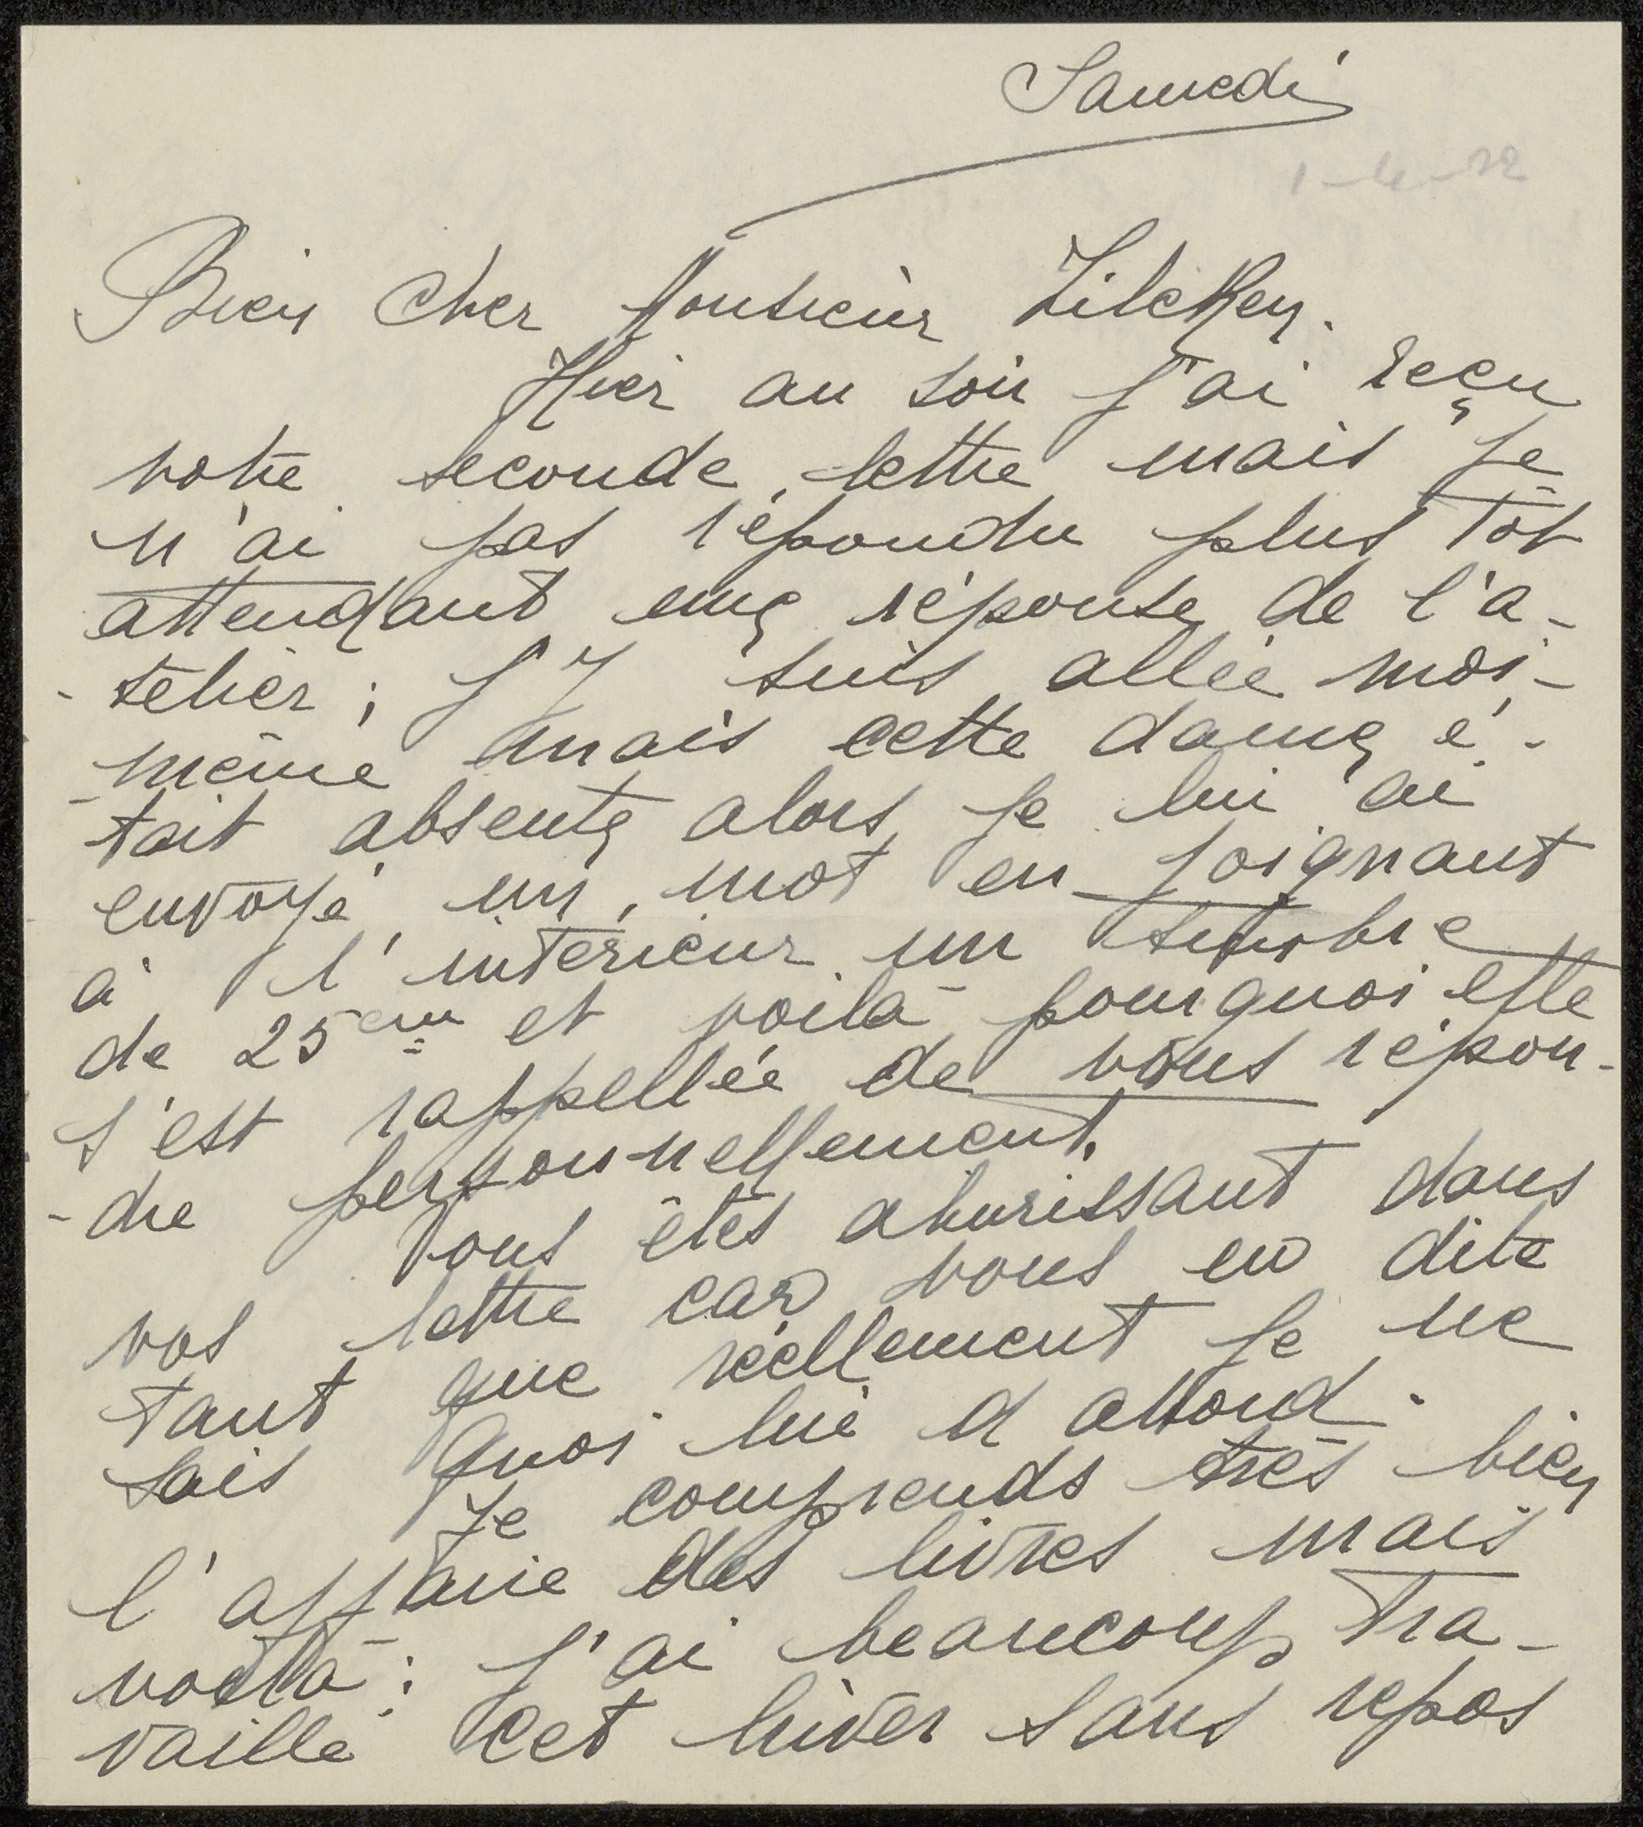 Samedi
1-4-22
Bien cher Monsieur Zilcken.
Hier au soir j'ai reçu
votre seconde lettre mais je
n'ai pas répondu plus tôt
attendant une réponse de l'a-
-telier; j'y suis allée moi-
-même mais cette dame é-
tait absente alors je lui ai
envoyé un mot en joignant
à l'intérieur un timbre
de 25em et voilà pourquoi elle
s'est rappellée de vous répon-
-dre personnellement.
Vous êtes ahurissant dans
vos lettre car vous en dite
tant que réellement je ne
sais quoi lui d'abord.
Je comprends très bien
l'affaire des livres mais
voilà: j'ai beaucoup tra-
vaillé cet hiver sans repos